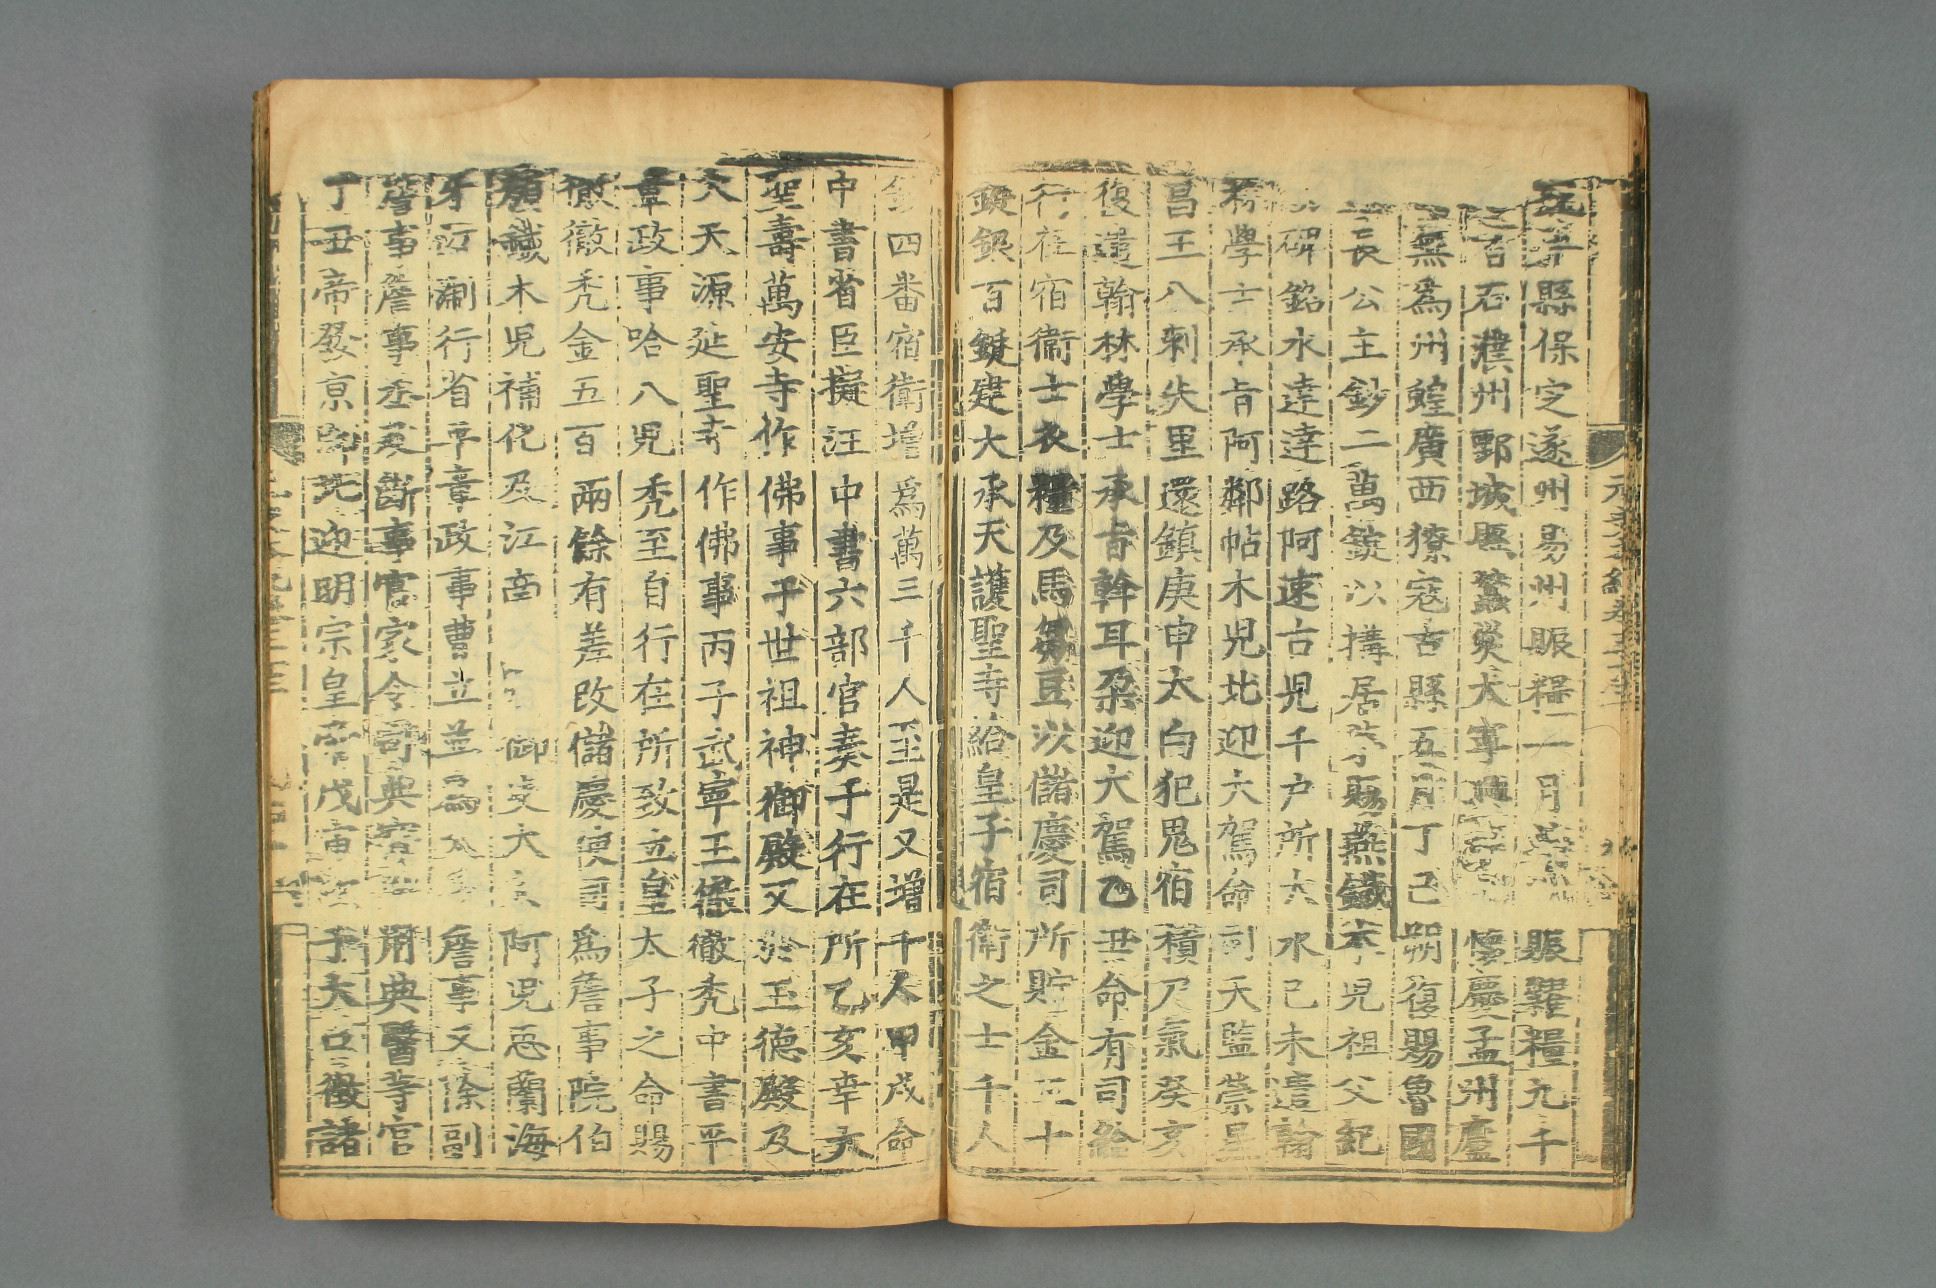 縣保定遂州易州賑糧一月賑糶糧九千
石濮州鄄城縣蠶災大寧懷慶孟州廬
無爲州蝗廣西獠寇古縣五月丁己朔復賜魯國
長公主鈔二萬錠以搆居第賜燕鐵木兒祖父紀
碑銘水逹逹路阿速古兒千户所大水己未遣翰
學士承旨阿鄰帖木兒北迎大駕命司天監崇星
昌王八剌失里還鎮庚申太白犯鬼宿積尸氣癸亥
復遣翰林學士承旨斡耳朶迎大駕乙丑命有司給
行在宿衞士衣糧及馬芻豆以儲慶司所貯金三十
錠銀百錠建大承天護聖寺給皇子宿衞之士千人
四番宿衞增爲萬三千人至是又增千人甲戌命
中書省臣擬注中書六部官奏于行在所乙亥幸大
聖壽萬安寺作佛事于世祖神御殿又於玉德殿及
大天源延聖寺作佛事丙子武寧王徹徹秃中書平
章政事哈八兒秃至自行在所致立皇太子之命賜
徹徹秃金五百兩餘有差改儲慶使司爲詹事院伯
顔鐵木兒補化及江南御史大夫阿兒思蘭海
牙江浙行省平章政事曹立並爲太子詹事又除副
詹事詹事丞及斷事官家令司典寶典用典醫等官
丁丑帝發京師北迎明宗皇帝戊寅次于大口徵諸